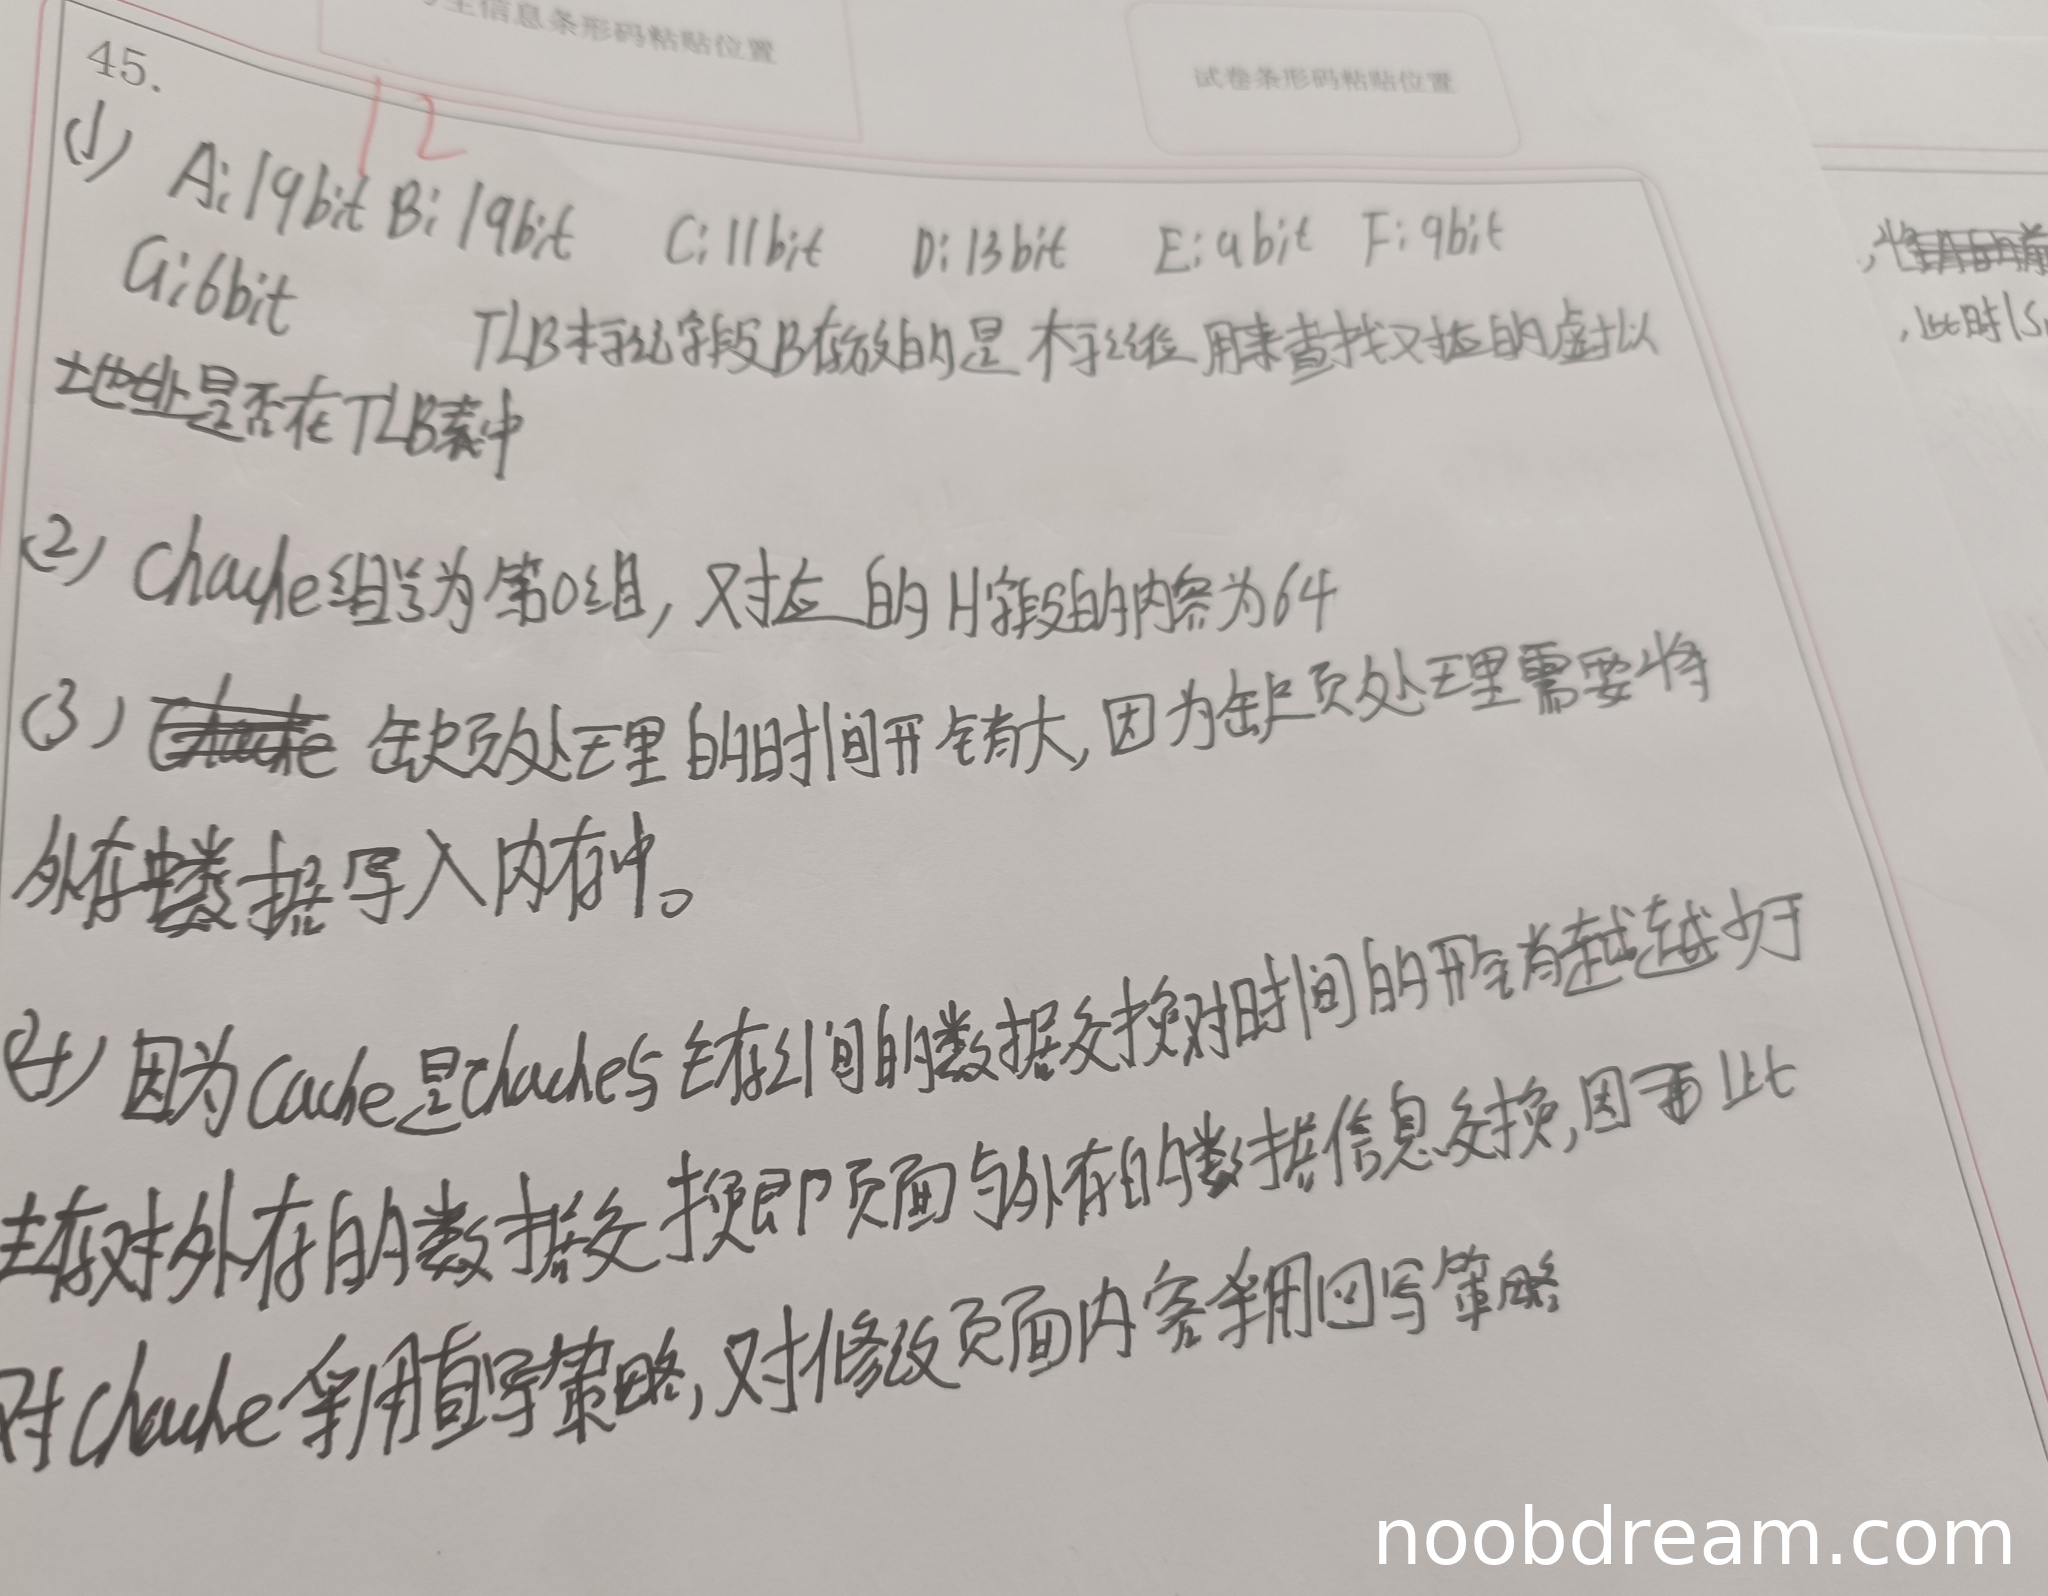 考生信息条形码粘贴位置
试卷条形码粘贴位置
45.
12
(1) A:19bit B:19bit C:11bit D:13bit E:9bit F:9bit
G:6bit TLB标记字段B存放的是标记位 用来查找对应的虚拟
地址是否在TLB表中
(2) Chache组号为第0组, 对应的H字段的内容为64
(3) 缺页处理的时间开销大, 因为缺页处理需要将
外存中数据写入内存中。
(4) 因为Cache是Chache与主存之间的数据交换对时间的开销越越少于
主存对外存的数据交换即页面与外存的数据信息交换,因而此
对Chache采用直写策略, 对修改页面内容采用回写策略
,此时
noobdream.com